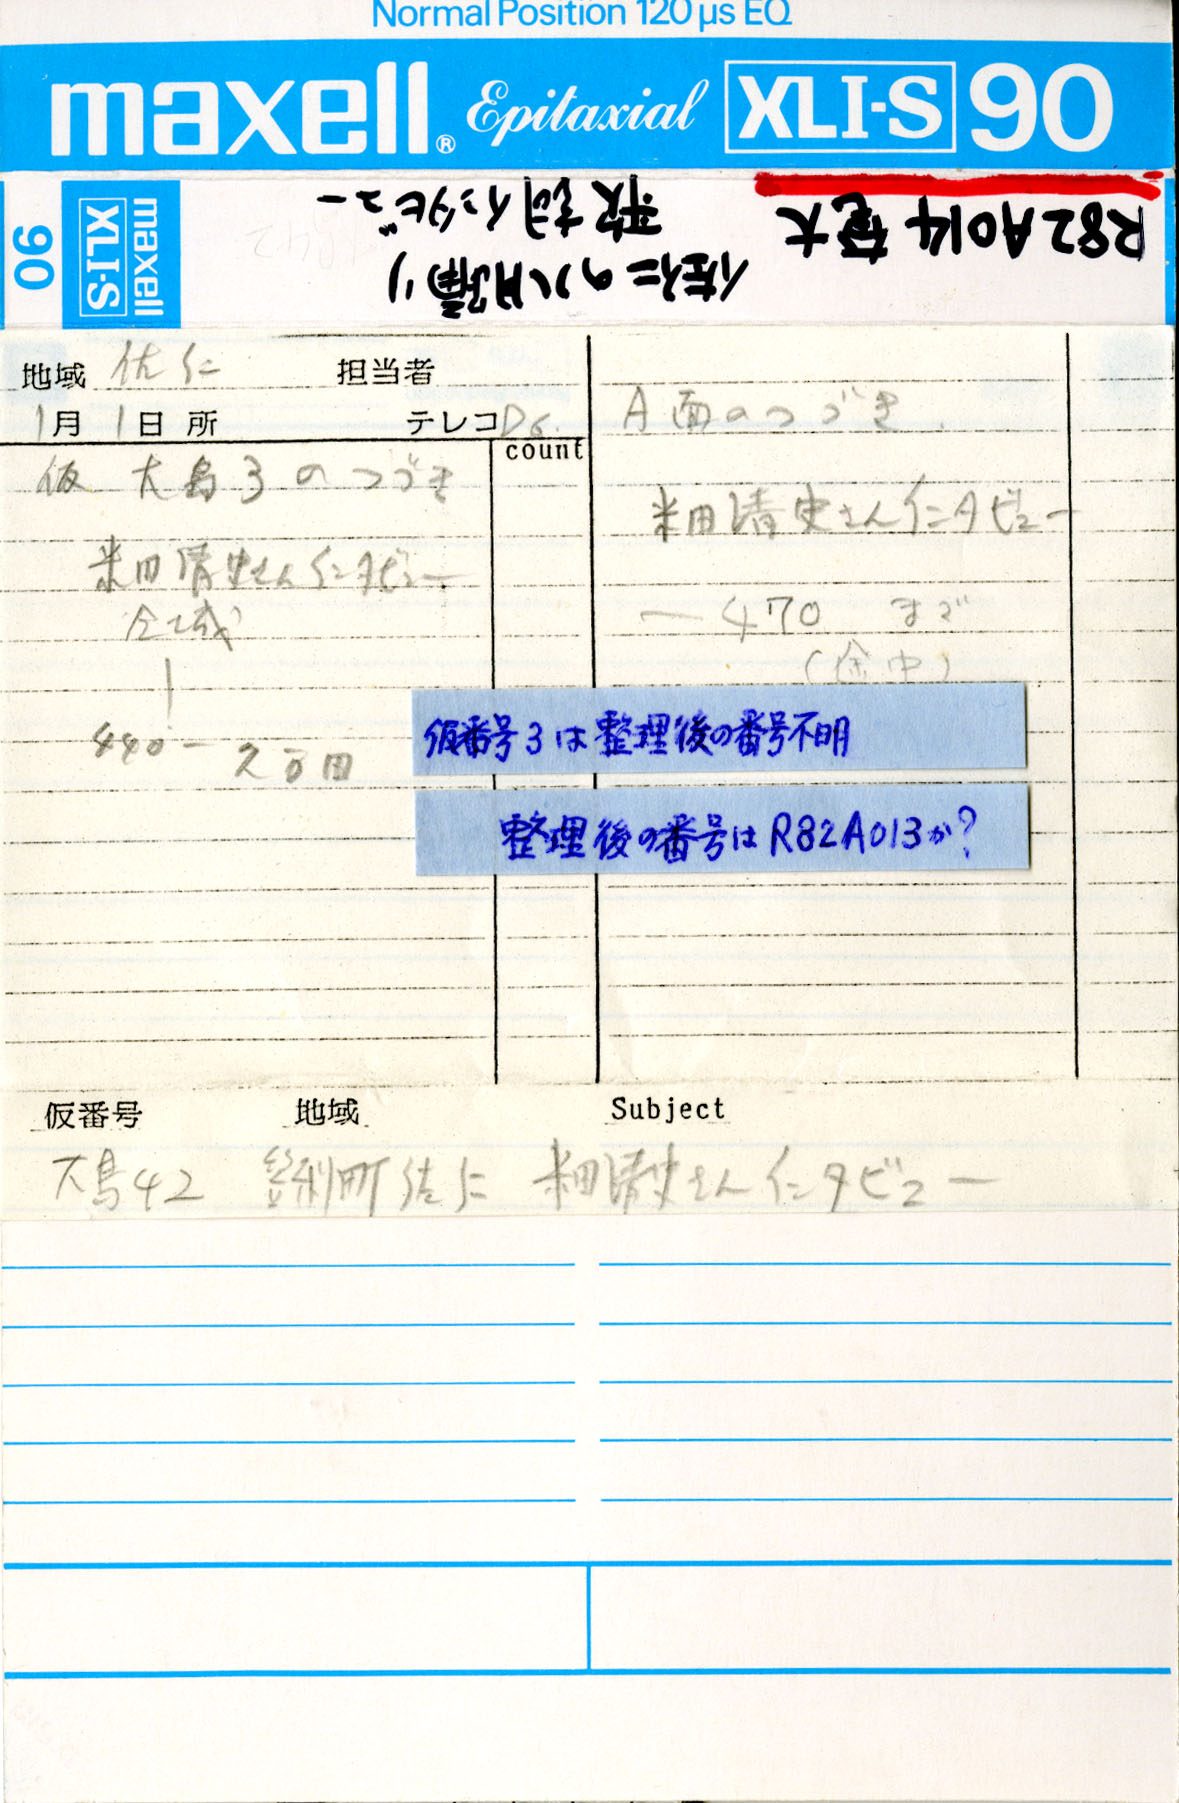 Normal Position 120 μs EQ
maxell® Epitaxial XLI-S 90
R82A014 奄大
佐仁の八月踊り
歌詞インタビュー
maxell
XLI-S
90
地域 佐仁 担当者
1月 1日 所 テレコ D6
count
仮 大島3のつづき
米田清史さんインタビュー
440ー
A面のつづき
米田清史さんインタビュー
ー470 まで
(途中)
仮番号3は整理後の番号不明
整理後の番号はR82A013か?
仮番号 地域 Subject
大島42 笠利町佐仁 米田清史さんインタビュー